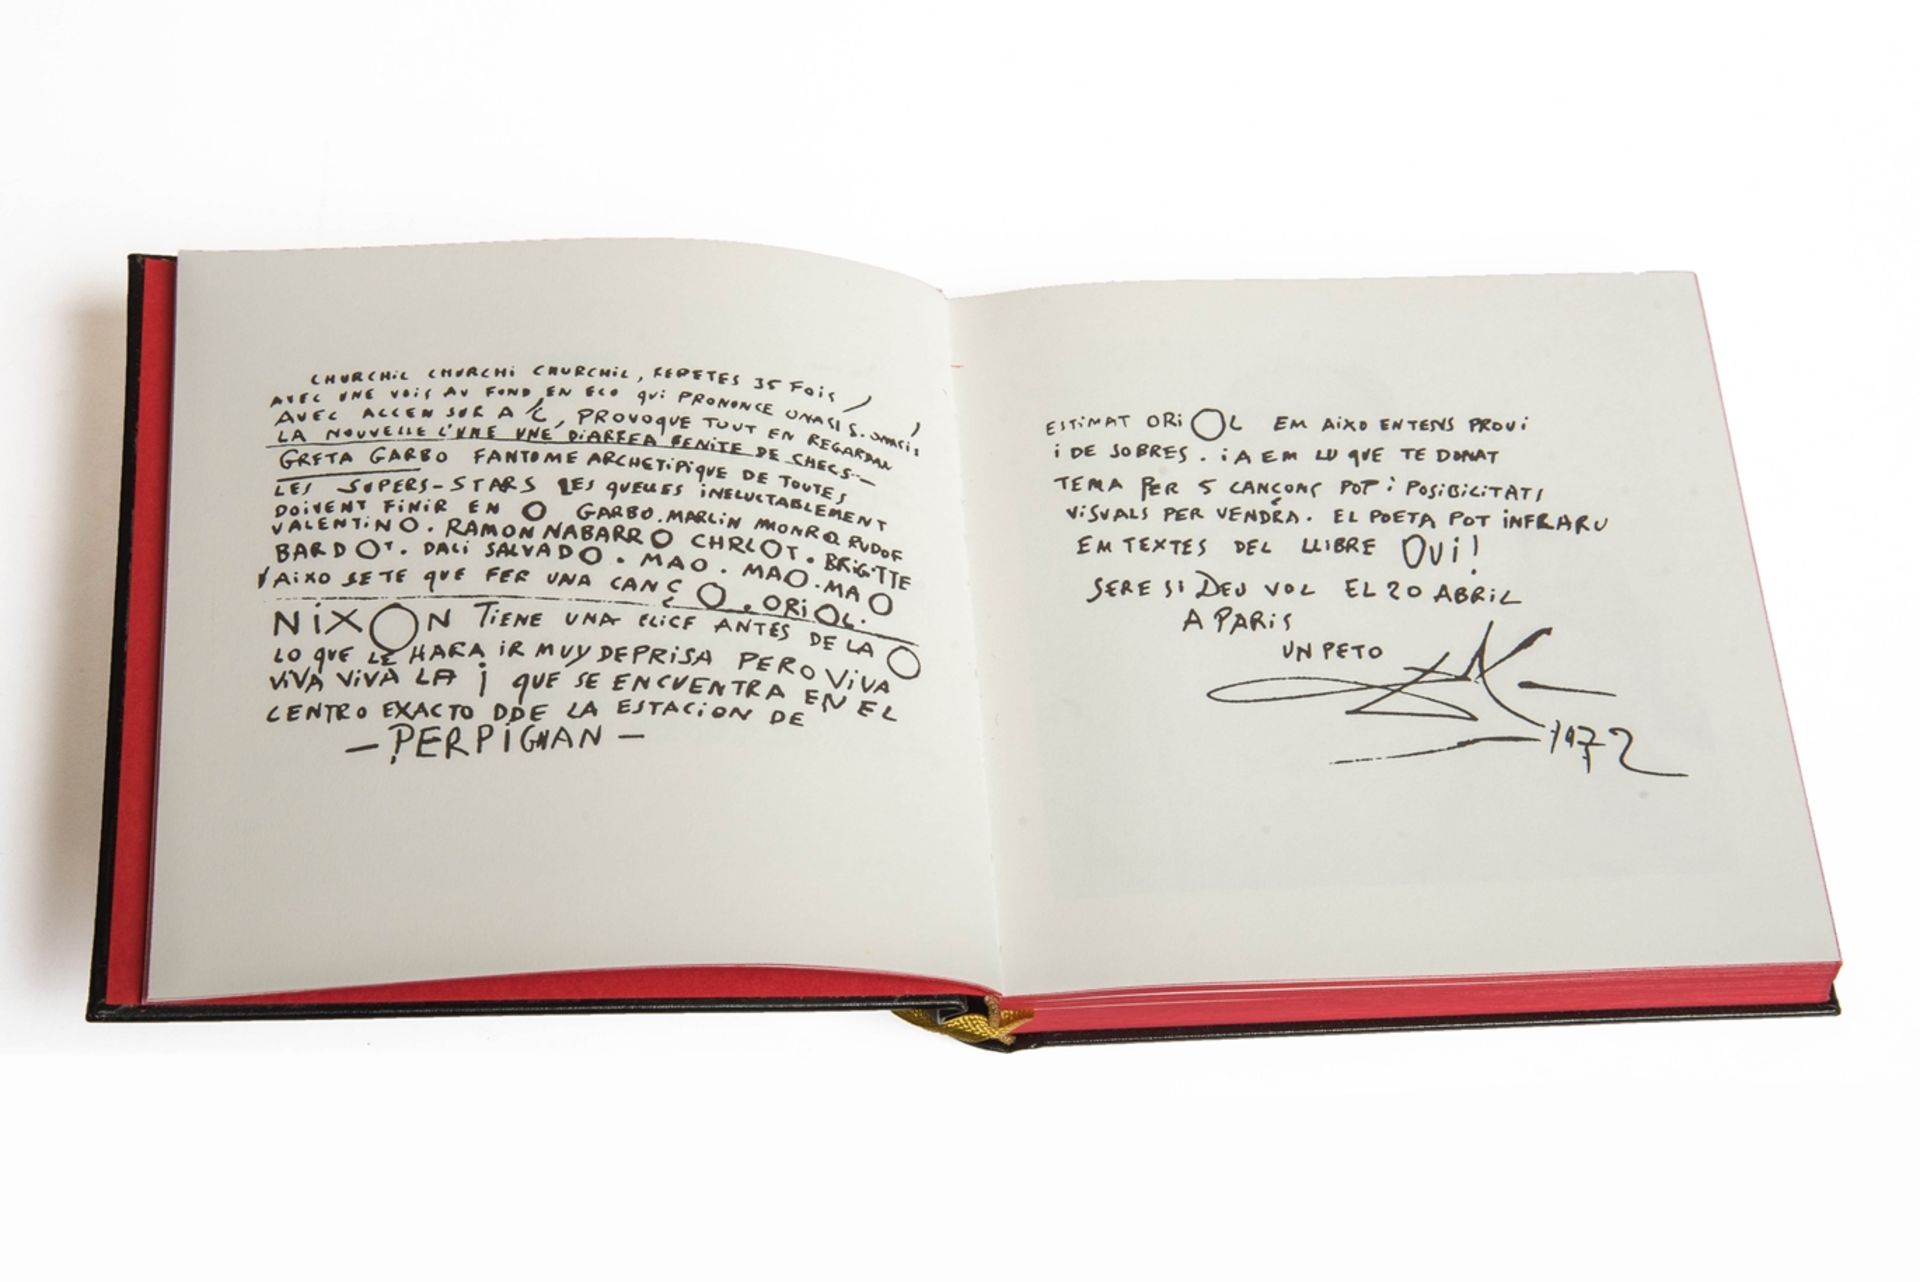 CHURCHIL CHURCHI CHURCHIL, REPETES 35 FOIS,
AVEC UNE VOIS AU FOND, EN ECO QUI PRONONCE ONASIS. ONASIS
AVEC ACCEN SUR A É, PROVOQUE TOUT EN REGARDAN
LA NOUVELLE L'UNE UNE DIARREA BENITE DE CHECS
GRETA GARBO FANTOME ARCHETIPIQUE DE TOUTES
LES SUPERS-STARS LES QUELLES INELUCTABLEMENT
DOIVENT FINIR EN O GARBO. MARLIN MONRO RUDOF
VALENTINO. RAMON NABARRO CHRLOT. BRIGITTE
BARDOT. DALI SALVADO. MAO. MAO. MAO
AIXO SE TE QUE FER UNA CANÇO. ORIOL.
NIXON TIENE UNA ELICE ANTES DE LA O
LO QUE LE HARA IR MUY DEPRISA PERO VIVA
VIVA VIVA LA ¡ QUE SE ENCUENTRA EN EL
CENTRO EXACTO DDE LA ESTACION DE
— PERPIGNAN —
ESTIMAT ORIOL EM AIXO ENTENS PROUI
I DE SOBRES. IA EM LU QUE TE DONAT
TEMA PER 5 CANÇONS POT I POSIBILITATI
VISUALS PER VENDRA. EL POETA POT INFRARU
EM TEXTES DEL LLIBRE OUI!
SERE SI DEU VOL EL 20 ABRIL
A PARIS
UN PETO
1972